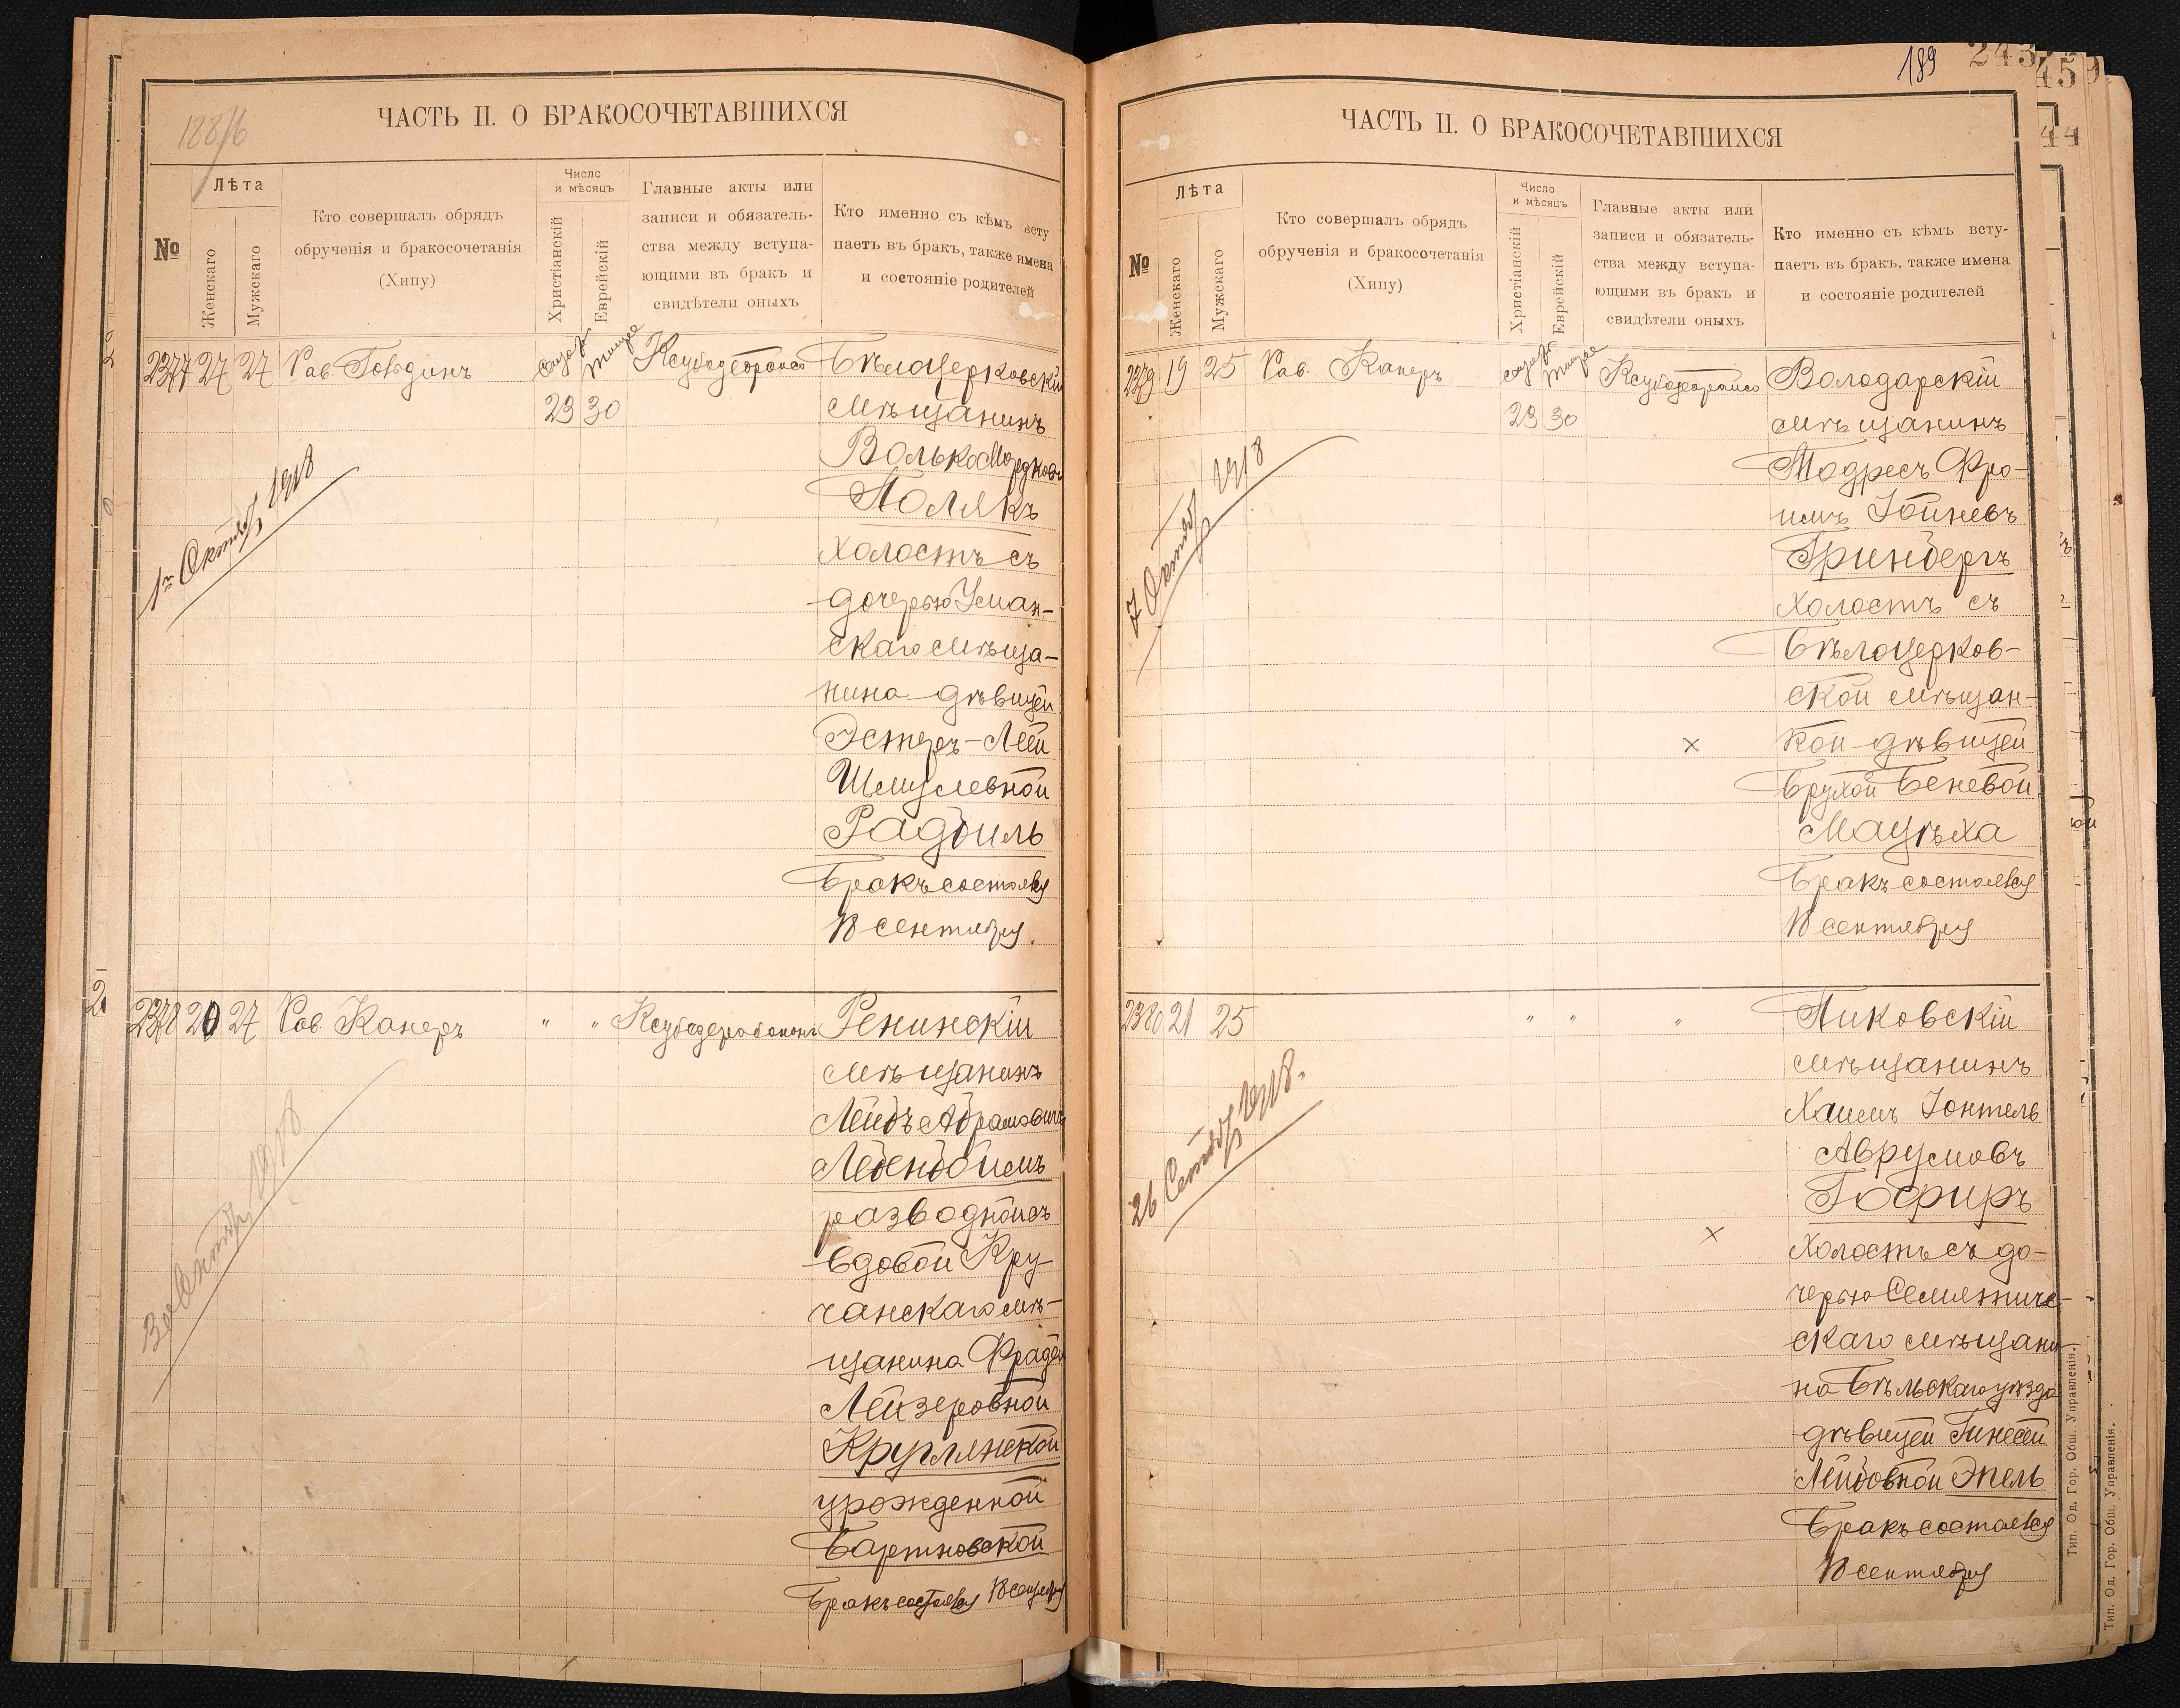 188/6
ЧАСТЬ II. О БРАКОСОЧЕТАВШИХСЯ
№
Лѣта
Женскаго
Мужскаго
Кто совершалъ обрядъ
обрученія и бракосочетанія
(Хипу)
Число
и мѣсяцъ
Христіанскій
Еврейскій
Главные акты или
записи и обязатель-
ства между вступа-
ющими въ бракъ и
свидѣтели оныхъ
Кто именно съ кѣмъ всту
паетъ въ бракъ, также имена
и состояніе родителей
2377 27 27 Рав. Говдинъ
23 30
1го Октяб 1918
Бѣлоцерковскій
мѣщанинъ
Волько Мордков
Полякъ
холостъ съ
дочерью Уман-
скаго мѣща-
нина дѣвицей
Эстеръ-Леей
Шмулевной
Радбиль
Бракъ состоялся
18 сентября.
2378 20 27 Рав Канеръ " "
Октяб 1918
Ренинскій
мѣщанинъ
Лейбъ Абрамовичъ
Лебенбоимъ
разводной съ
вдовой Кру-
чанскаго мѣ-
щанина Фрадей
Лейзеровной
Круглянской
урожденной
Бартновской
Бракъ состоялся 18 сентября
189
243
459
44
ЧАСТЬ II. О БРАКОСОЧЕТАВШИХСЯ
№
Лѣта
Женскаго
Мужскаго
Кто совершалъ обрядъ
обрученія и бракосочетанія
(Хипу)
Число
и мѣсяцъ
Христіанскій
Еврейскій
Главные акты или
записи и обязатель-
ства между вступа-
ющими въ бракъ и
свидѣтели оныхъ
Кто именно съ кѣмъ всту-
паетъ въ бракъ, также имена
и состояніе родителей
2379 19 25 Рав. Канеръ
23 30
7 Октяб 1918
Володарскій
мѣщанинъ
Тодресъ Фро-
имъ Іойневъ
Гринбергъ
холостъ съ
Бѣлоцерков-
ской мѣщан-
х кой дѣвицей
Брухой Беневой
Мацѣха
Бракъ состоялся
18 сентября
2380 21 25 " " "
26 Сентяб 1918.
Пиковскій
мѣщанинъ
Хаимъ Іонтель
Аврумовъ
Гофиръ
х холостъ съ до-
черью Семятиче-
скаго мѣщани-
на Бѣльскаго уѣзда
дѣвицей Гинесей
Лейбовной Эпель
Бракъ состоялся
18 сентября
Тип. Од. Гор. Общ. Управленія.
Тип. Од. Гор. Общ. Управленія.